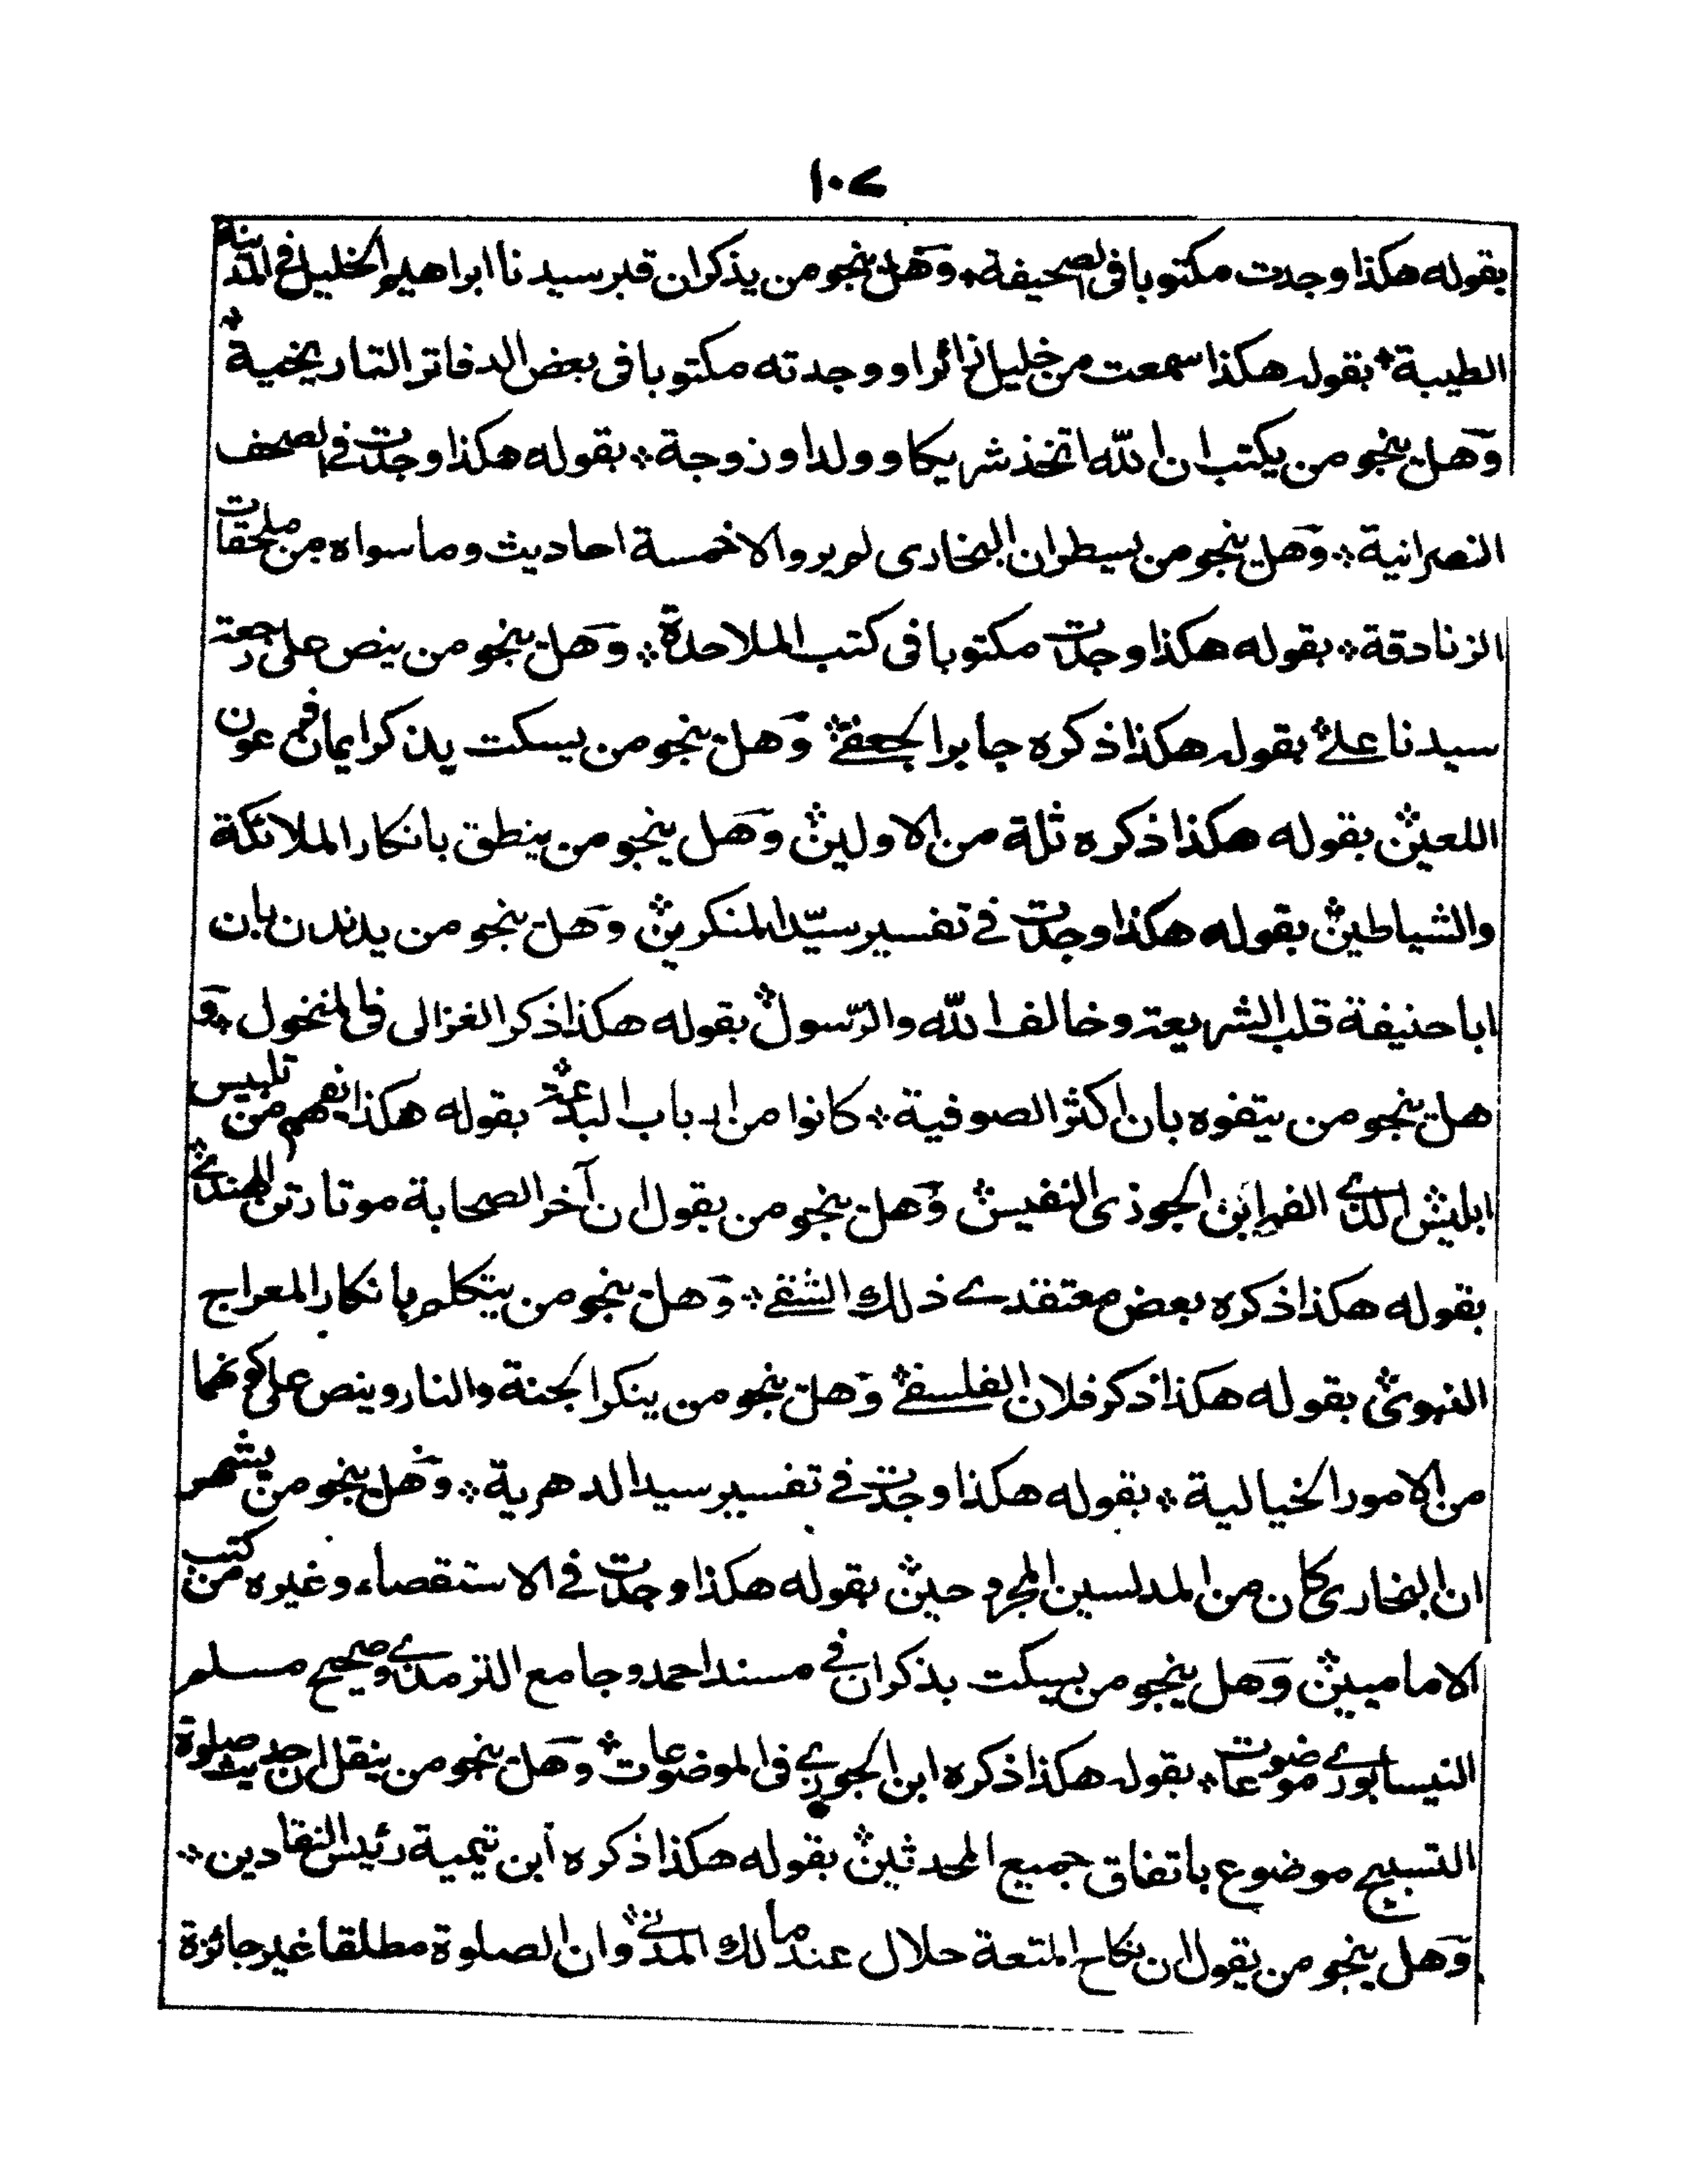 ١٠٧
بقوله هكذا وجدت مكتوبا فى الصحيفة ٭ وهل ينجو من يذكر ان قبر سيدنا ابراهيم الخليل فى المدينة
الطيبة ٭ بقوله هكذا سمعت من خليل زائرا ووجدته مكتوبا فى بعض الدفاتر التاريخية ٭
وهل ينجو من يكتب ان الله اتخذ شريكا وولدا وزوجة ٭ بقوله هكذا وجدت فى الصحف
النصرانية ٭ وهل ينجو من يسطر ان البخارى لم يرو الا خمسة احاديث وما سواه من ملحقات
الزنادقة ٭ بقوله هكذا وجدت مكتوبا فى كتب الملاحدة ٭ وهل ينجو من ينص على رجعة
سيدنا على ٭ بقوله هكذا ذكره جابر الجعفى ٭ وهل ينجو من يسكت بذكر ايمان فرعون
اللعين ٭ بقوله هكذا ذكره ثلة من الاولين ٭ وهل ينجو من ينطق بانكار الملائكة
والشياطين ٭ بقوله هكذا وجدت فى تفسير سيّد المنكرين ٭ وهل ينجو من يدندن بان
ابا حنيفة قلب الشريعة وخالف الله والرّسول ٭ بقوله هكذا ذكر الغزالى فى المنخول ٭ و
هل ينجو من يتفوه بان اكثر الصوفية ٭ كانوا من ارباب البدعة ٭ بقوله هكذا يفهم من تلبيس
ابليس ٭ الذى الفه ابن الجوزى النفيس ٭ وهل ينجو من يقول ان آخر الصحابة موتا رتن الهندى ٭
بقوله هكذا ذكره بعض معتقدى ذلك الشقى ٭ وهل ينجو من يتكلم بانكار المعراج
النبوى ٭ بقوله هكذا ذكر فلان الفلسفى ٭ وهل ينجو من ينكر الجنة والنار وينص على كونهما
من الامور الخيالية ٭ بقوله هكذا وجدت فى تفسير سيد الدهرية ٭ وهل ينجو من يشهر
ان البخارى كان من المدلسين المجروحين ٭ بقوله هكذا وجدت فى الاستقصاء وغيره من كتب
الاماميين ٭ وهل ينجو من يسكت بذكر ان فى مسند احمد وجامع الترمذى وصحيح مسلم
النيسابورى موضوعات ٭ بقوله هكذا ذكره ابن الجوزى فى الموضوعات ٭ وهل ينجو من ينقل ان حديث صلوة
التسبيح موضوع باتفاق جميع المحدثين ٭ بقوله هكذا ذكره ابن تيمية رئيس النقادين ٭
وهل ينجو من يقول ان نكاح المتعة حلال عند مالك المدنى ٭ وان الصلوة مطلقا غير جائزة